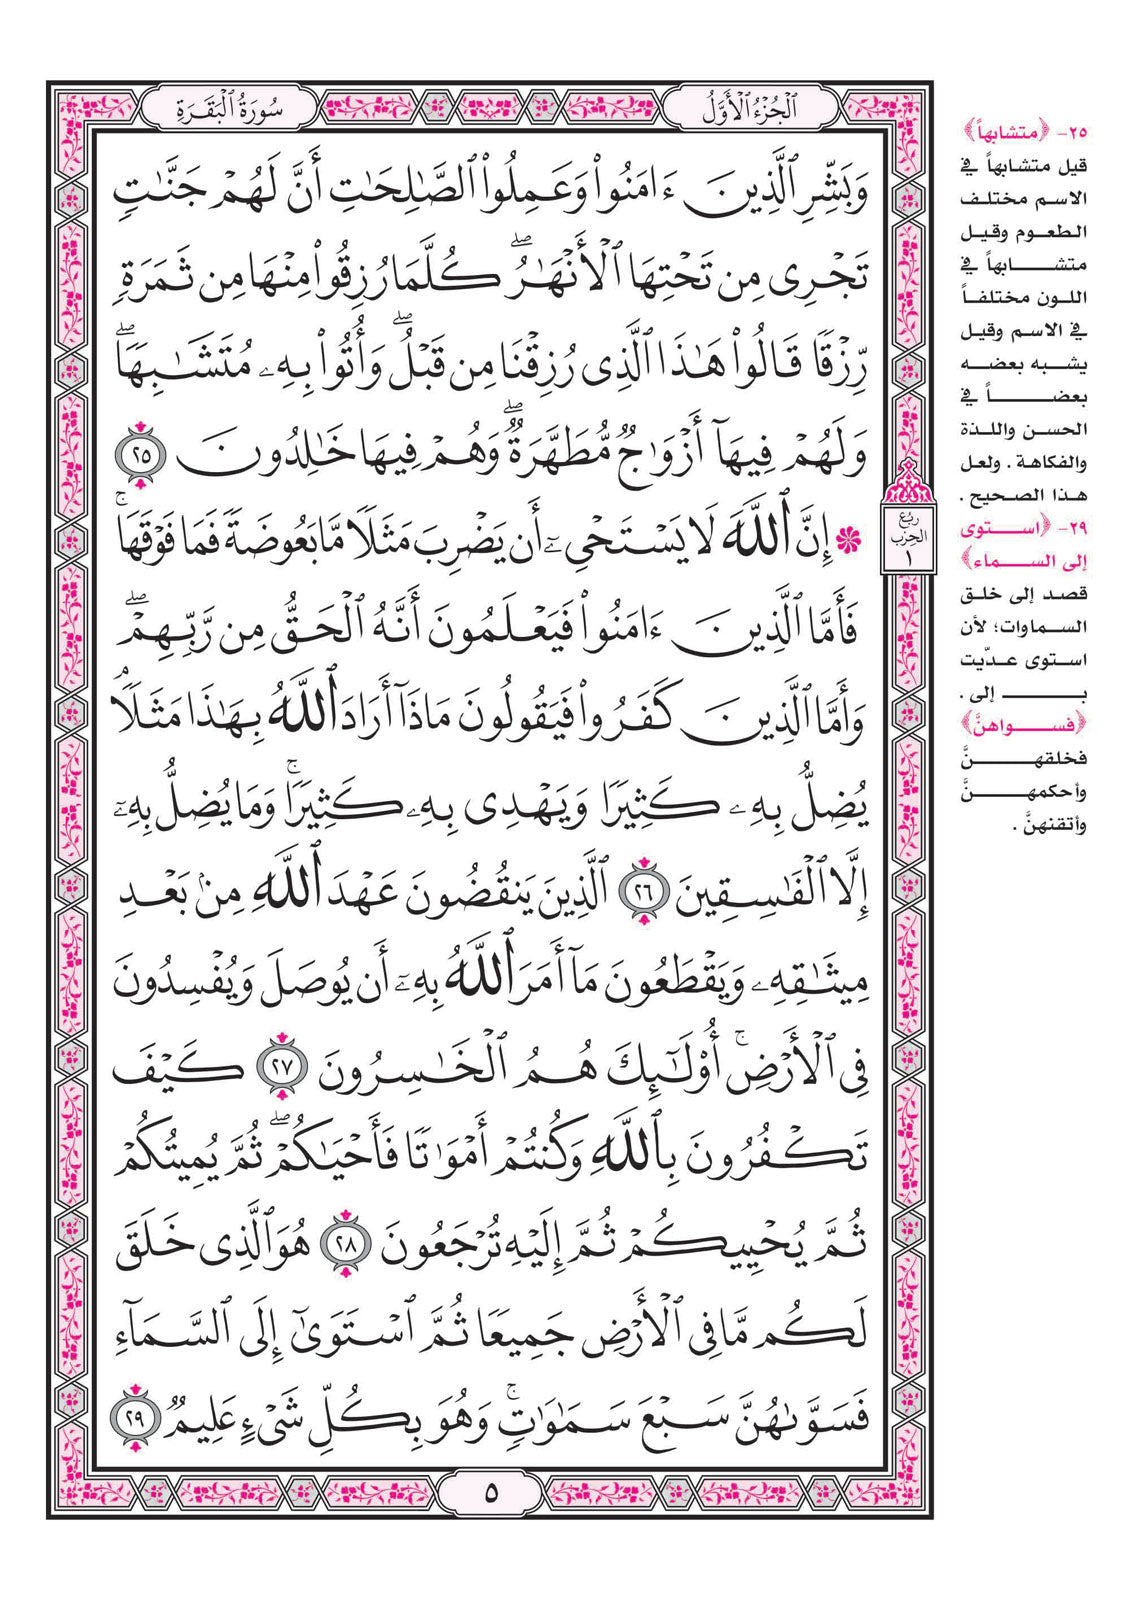 سُورَةُ الْبَقَرَةِ
الْجُزْءُ الْأَوَّلُ
وَبَشِّرِ ٱلَّذِينَ ءَامَنُوا۟ وَعَمِلُوا۟ ٱلصَّـٰلِحَـٰتِ أَنَّ لَهُمْ جَنَّـٰتٍ
تَجْرِى مِن تَحْتِهَا ٱلْأَنْهَـٰرُ ۖ كُلَّمَا رُزِقُوا۟ مِنْهَا مِن ثَمَرَةٍ
رِّزْقًا قَالُوا۟ هَـٰذَا ٱلَّذِى رُزِقْنَا مِن قَبْلُ ۖ وَأُتُوا۟ بِهِۦ مُتَشَـٰبِهًا ۖ
وَلَهُمْ فِيهَآ أَزْوَٰجٌ مُّطَهَّرَةٌ ۖ وَهُمْ فِيهَا خَـٰلِدُونَ ٢٥
۞ إِنَّ ٱللَّهَ لَا يَسْتَحْىِۦٓ أَن يَضْرِبَ مَثَلًا مَّا بَعُوضَةً فَمَا فَوْقَهَا ۚ
فَأَمَّا ٱلَّذِينَ ءَامَنُوا۟ فَيَعْلَمُونَ أَنَّهُ ٱلْحَقُّ مِن رَّبِّهِمْ ۖ
وَأَمَّا ٱلَّذِينَ كَفَرُوا۟ فَيَقُولُونَ مَاذَآ أَرَادَ ٱللَّهُ بِهَـٰذَا مَثَلًا ۘ
يُضِلُّ بِهِۦ كَثِيرًا وَيَهْدِى بِهِۦ كَثِيرًا ۚ وَمَا يُضِلُّ بِهِۦٓ
إِلَّا ٱلْفَـٰسِقِينَ ٢٦ ٱلَّذِينَ يَنقُضُونَ عَهْدَ ٱللَّهِ مِنۢ بَعْدِ
مِيثَـٰقِهِۦ وَيَقْطَعُونَ مَآ أَمَرَ ٱللَّهُ بِهِۦٓ أَن يُوصَلَ وَيُفْسِدُونَ
فِى ٱلْأَرْضِ ۚ أُو۟لَـٰٓئِكَ هُمُ ٱلْخَـٰسِرُونَ ٢٧ كَيْفَ
تَكْفُرُونَ بِٱللَّهِ وَكُنتُمْ أَمْوَٰتًا فَأَحْيَـٰكُمْ ۖ ثُمَّ يُمِيتُكُمْ
ثُمَّ يُحْيِيكُمْ ثُمَّ إِلَيْهِ تُرْجَعُونَ ٢٨ هُوَ ٱلَّذِى خَلَقَ
لَكُم مَّا فِى ٱلْأَرْضِ جَمِيعًا ثُمَّ ٱسْتَوَىٰٓ إِلَى ٱلسَّمَآءِ
فَسَوَّىٰهُنَّ سَبْعَ سَمَـٰوَٰتٍ ۚ وَهُوَ بِكُلِّ شَىْءٍ عَلِيمٌ ٢٩
٥
ربع
الحزب
١
٢٥- ﴿متشابهاً﴾
قيل متشابهاً في
الاسم مختلف
الطعوم وقيل
متشابهاً في
اللون مختلفاً
في الاسم وقيل
يشبه بعضه
بعضاً في
الحسن واللذة
والفكاهة . ولعل
هذا الصحيح .
٢٩- ﴿استوى
إلى السماء﴾
قصد إلى خلق
السماوات؛ لأن
استوى عدّيت
بـ إلى .
﴿فسواهنَّ﴾
فخلقهنَّ
وأحكمهنَّ
وأتقنهنَّ .